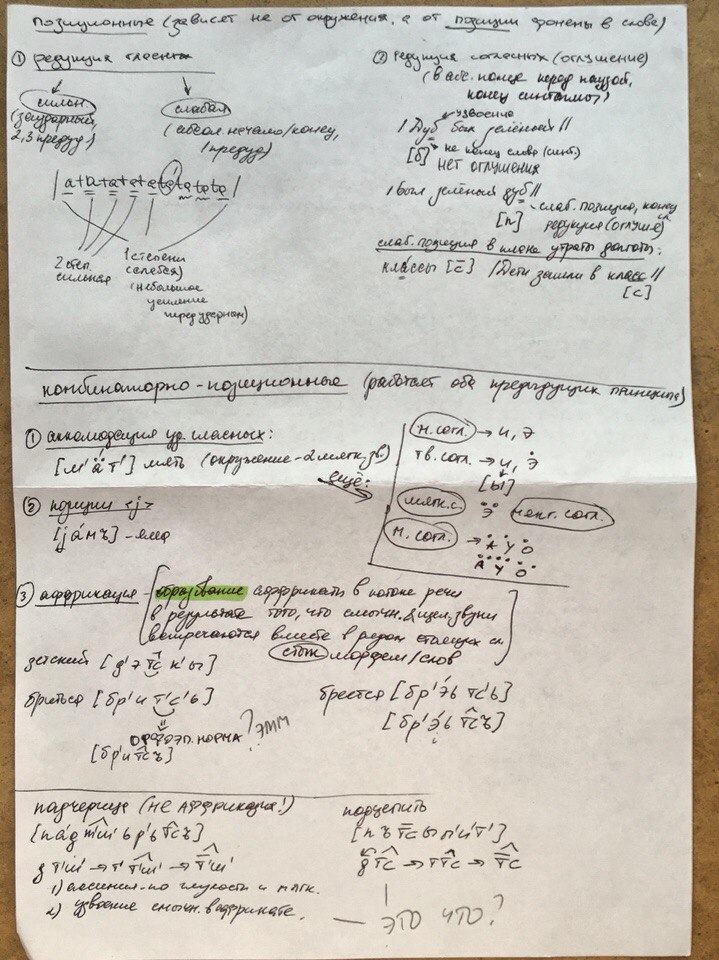 позиционные (зависят не от окружения, а от позиции фонемы в слове)
① редукция гласных
сильн
(заударный,
2,3 предуд)
слабая
(абсол. начало/конец,
1 предуд)
| а та та те те те те те |
2 степ.
сильная
1 степени
(слабая)
(небольшое
усиление
перед ударным)
② редукция согласных (оглушение)
(в абс. конце перед паузой,
конец синтагмы)
узвоение
/ Дуб был зелёный //
[б] не конец слова (синт.)
НЕТ оглушения
/ был зелёный дуб //
[п] - слаб. позиция, конец
редукция (оглуше)
слаб. позиция в плане утраты долготы:
классы [с̅] / Дети зашли в класс //
[с]
комбинаторно-позиционные (работает оба предыдущих принципа)
① аккомодация уд. гласных:
[м' ӓ т'] мять (окружение - 2 мягк. зв.)
ещё:
м. согл. → и, э
тв. согл. → и, э
[ы]
мягк. с. э мягк. согл.
м. согл. → а у о
а у о
② позиции <j>
[já м ъ] - яма
③ аффрикация - образование аффрикаты в потоке речи
в результате того, что смычн. & щел. звуки
встречаются вместе в рядом стоящих
стык морфем/слов
детский [д' э т͡с к' ы]
бриться [бр' и т' с' ь]
орфоэп. норма ? эмм
[бр' и т͡с ъ]
бреется [бр' э́ь тс' ь]
[бр' э́ ь т͡с ъ]
падчерица (НЕ аффрикация!)
[п á д т͡ш' ь р' ь т͡с ъ]
д т'ш' → т' т͡'ш' → т͡'ш'
1) ассимил. по глухости и мягк.
2) узвоение смычн. в аффрикате.
подцепить
[п ъ т͡с ы п' и́ т']
д т͡с → т т͡с → т͡с
— ЭТО ЧТО?